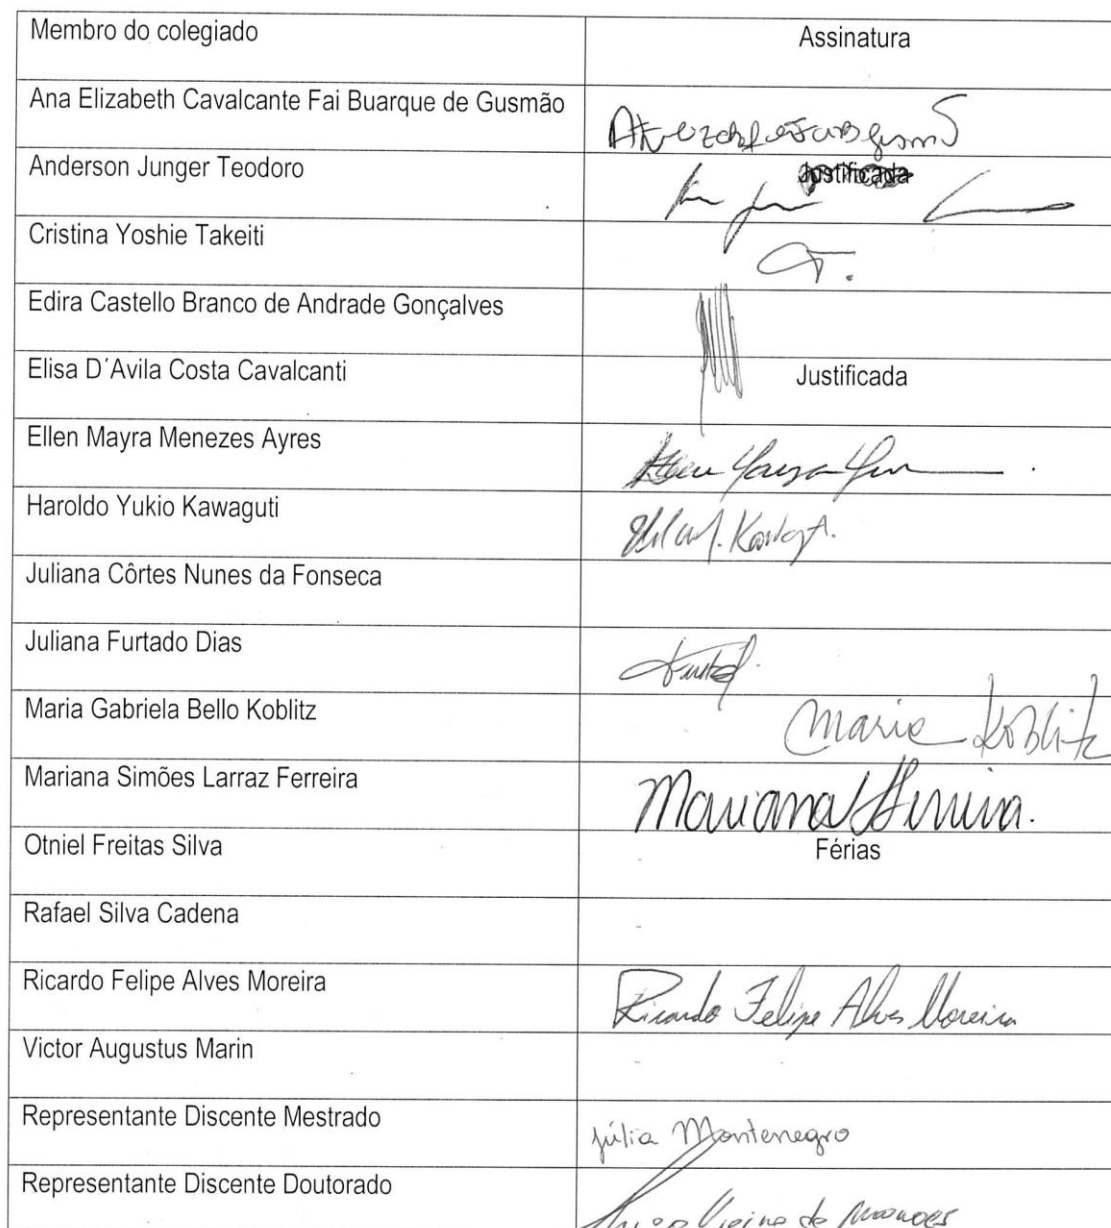 Membro do colegiado Assinatura
Ana Elizabeth Cavalcante Fai Buarque de Gusmão
Anderson Junger Teodoro Justificada
Cristina Yoshie Takeiti
Edira Castello Branco de Andrade Gonçalves
Elisa D´Avila Costa Cavalcanti Justificada
Ellen Mayra Menezes Ayres
Haroldo Yukio Kawaguti
Juliana Côrtes Nunes da Fonseca
Juliana Furtado Dias
Maria Gabriela Bello Koblitz Maria Koblitz
Mariana Simões Larraz Ferreira Mariana Ferreira.
Otniel Freitas Silva Férias
Rafael Silva Cadena
Ricardo Felipe Alves Moreira Ricardo Felipe Alves Moreira
Victor Augustus Marin
Representante Discente Mestrado Júlia Montenegro
Representante Discente Doutorado